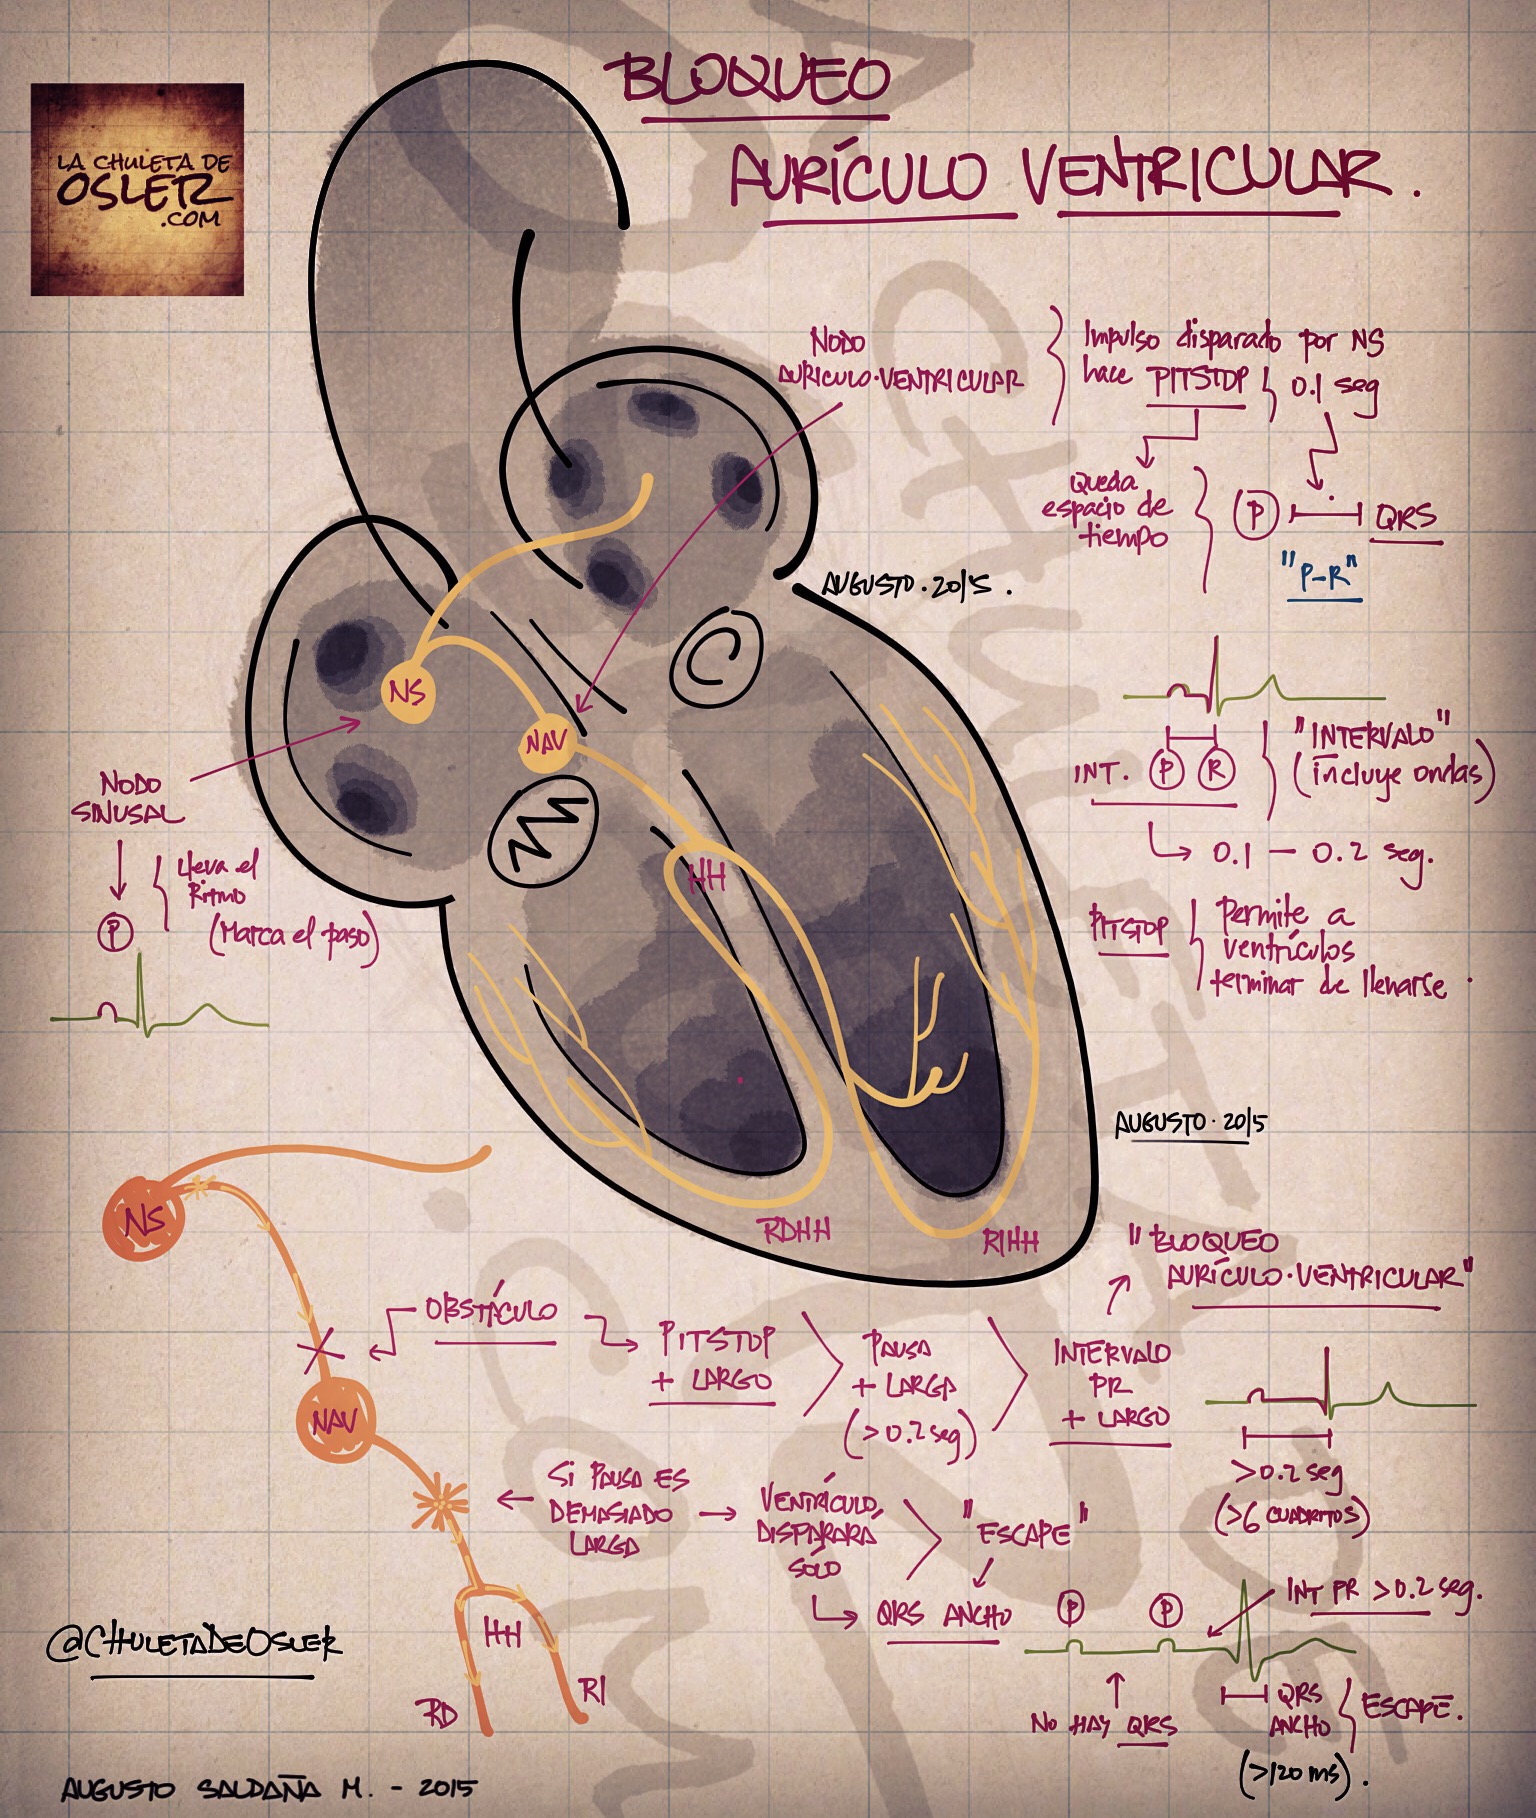 BLOQUEO
AURÍCULO VENTRICULAR.
LA CHULETA DE
OSLER
.COM
NODO
AURICULO·VENTRICULAR
Impulso disparado por NS
hace PITSTOP
0.1 seg
Queda
espacio de
tiempo
P
QRS
"P-R"
AUGUSTO·2015.
NS
NAV
HH
RDHH
RIHH
NODO
SINUSAL
Lleva el
Ritmo
(Marca el paso)
P
INT. P R
"INTERVALO"
(incluye ondas)
0.1 — 0.2 seg.
PITSTOP
Permite a
ventrículos
terminar de llenarse.
AUGUSTO·2015
NS
NAV
HH
RD
RI
OBSTÁCULO
PITSTOP
+ LARGO
PAUSA
+ LARGA
(>0.2 seg)
INTERVALO
PR
+ LARGO
"BLOQUEO
AURÍCULO·VENTRICULAR"
>0.2 seg
(>6 CUADRITOS)
SI PAUSA ES
DEMASIADO
LARGA
VENTRÍCULO
DISPARARÁ
SÓLO
"ESCAPE"
QRS ANCHO
P
P
INT PR >0.2 seg.
NO HAY QRS
QRS
ANCHO
ESCAPE.
(>120 ms).
@CHULETADEOSLER
AUGUSTO SALDAÑA M. - 2015